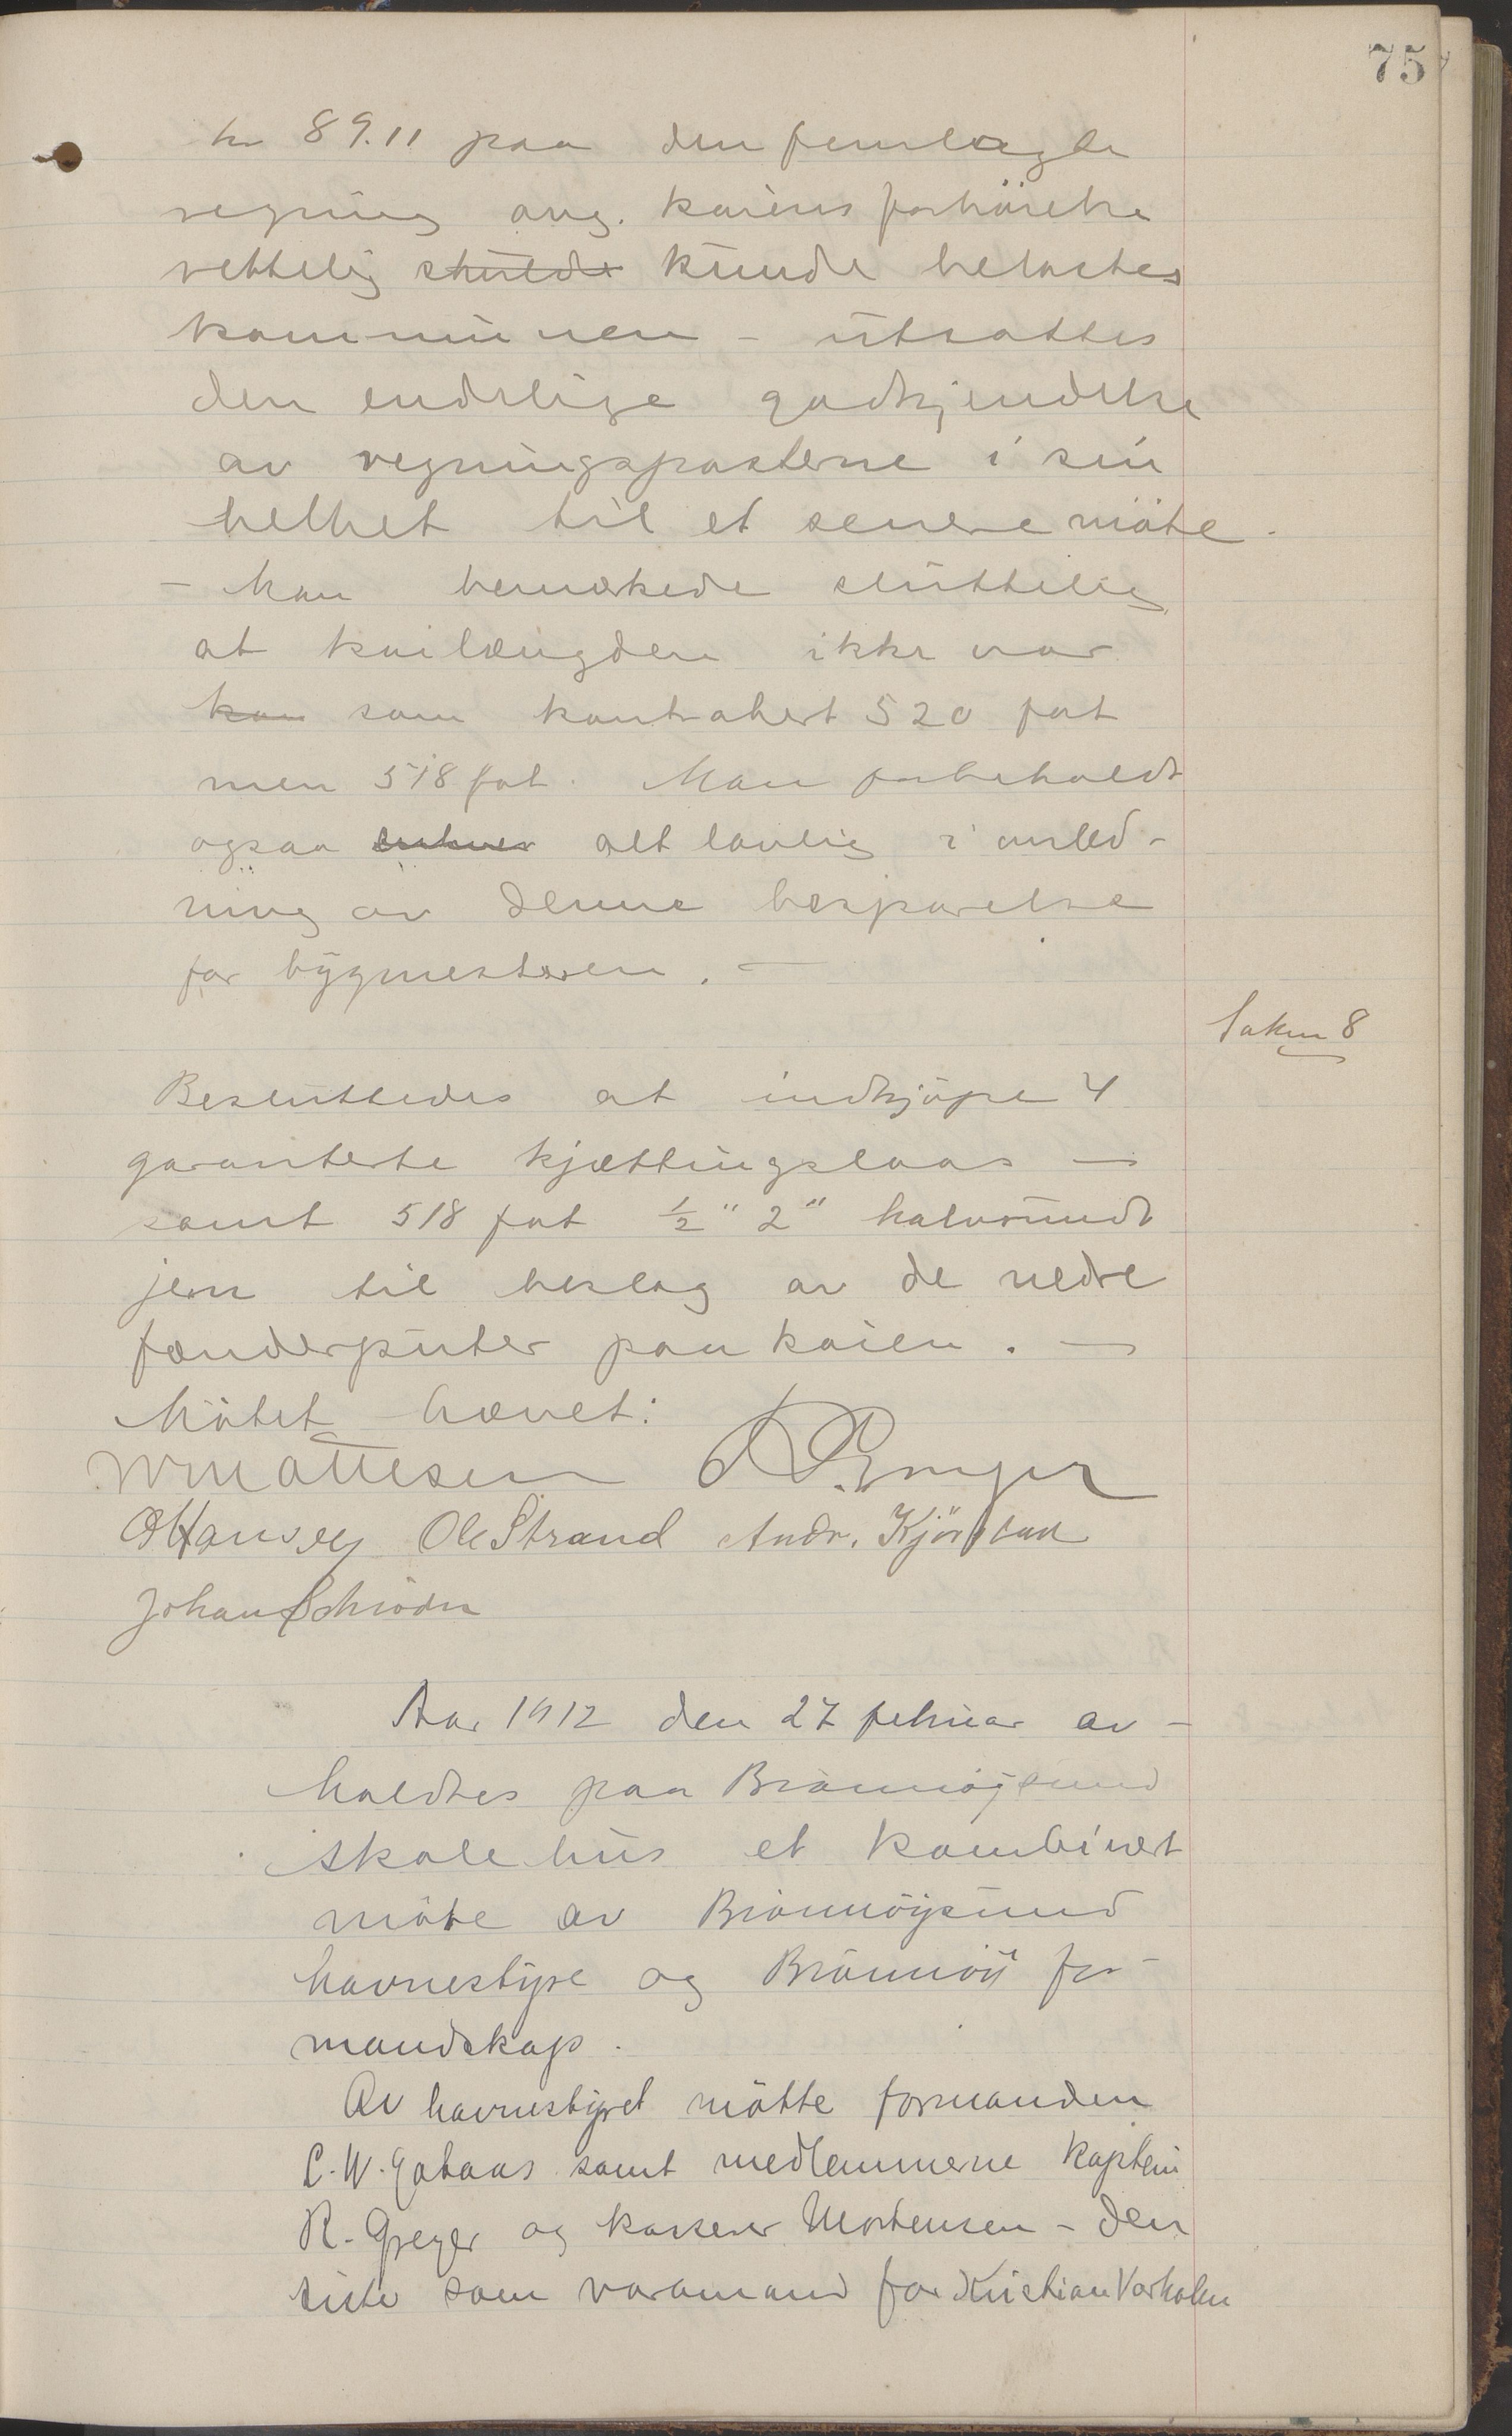 75
kr 89.11 paa den fremlagte
regning ang. kaiens forhöielse
rettelig skulde kunde belastes
kommunen - utsattes
den endelige godkjendelse
av regningsposterne i sin
helhet til et senere möte.
- Man bemerkede sluttelig
at kailængden ikke var
kon som kontrahert 520 fot
men 518 fot. Man forbeholdt
ogsaa enhver alt lovlig i anled-
ning av denne besparelse
for bygmesteren. -
Saken 8
Besluttedes at indkjöpe 4
garanterte kjættingslaas -
samt 518 fot ½" 2" halvrundt
jern til beslag av de nedre
fenderputer paa kaien. -
Mötet hævet:
Mattesen
O Hansen Ole Strand Andr. Kjörstad
Johan Schröder
Aar 1912 den 27 februar av-
holdtes paa Brönnöysund
skolehus et kombinert
möte av Brönnöysund
havnestyre og Brönnöy for-
mandskap.
Av havnestyret mötte formanden
C. W. samt medlemmerne kaptein
R. Greger og kasserer Mortensen - den
siste som varamand for Kristian Varholm